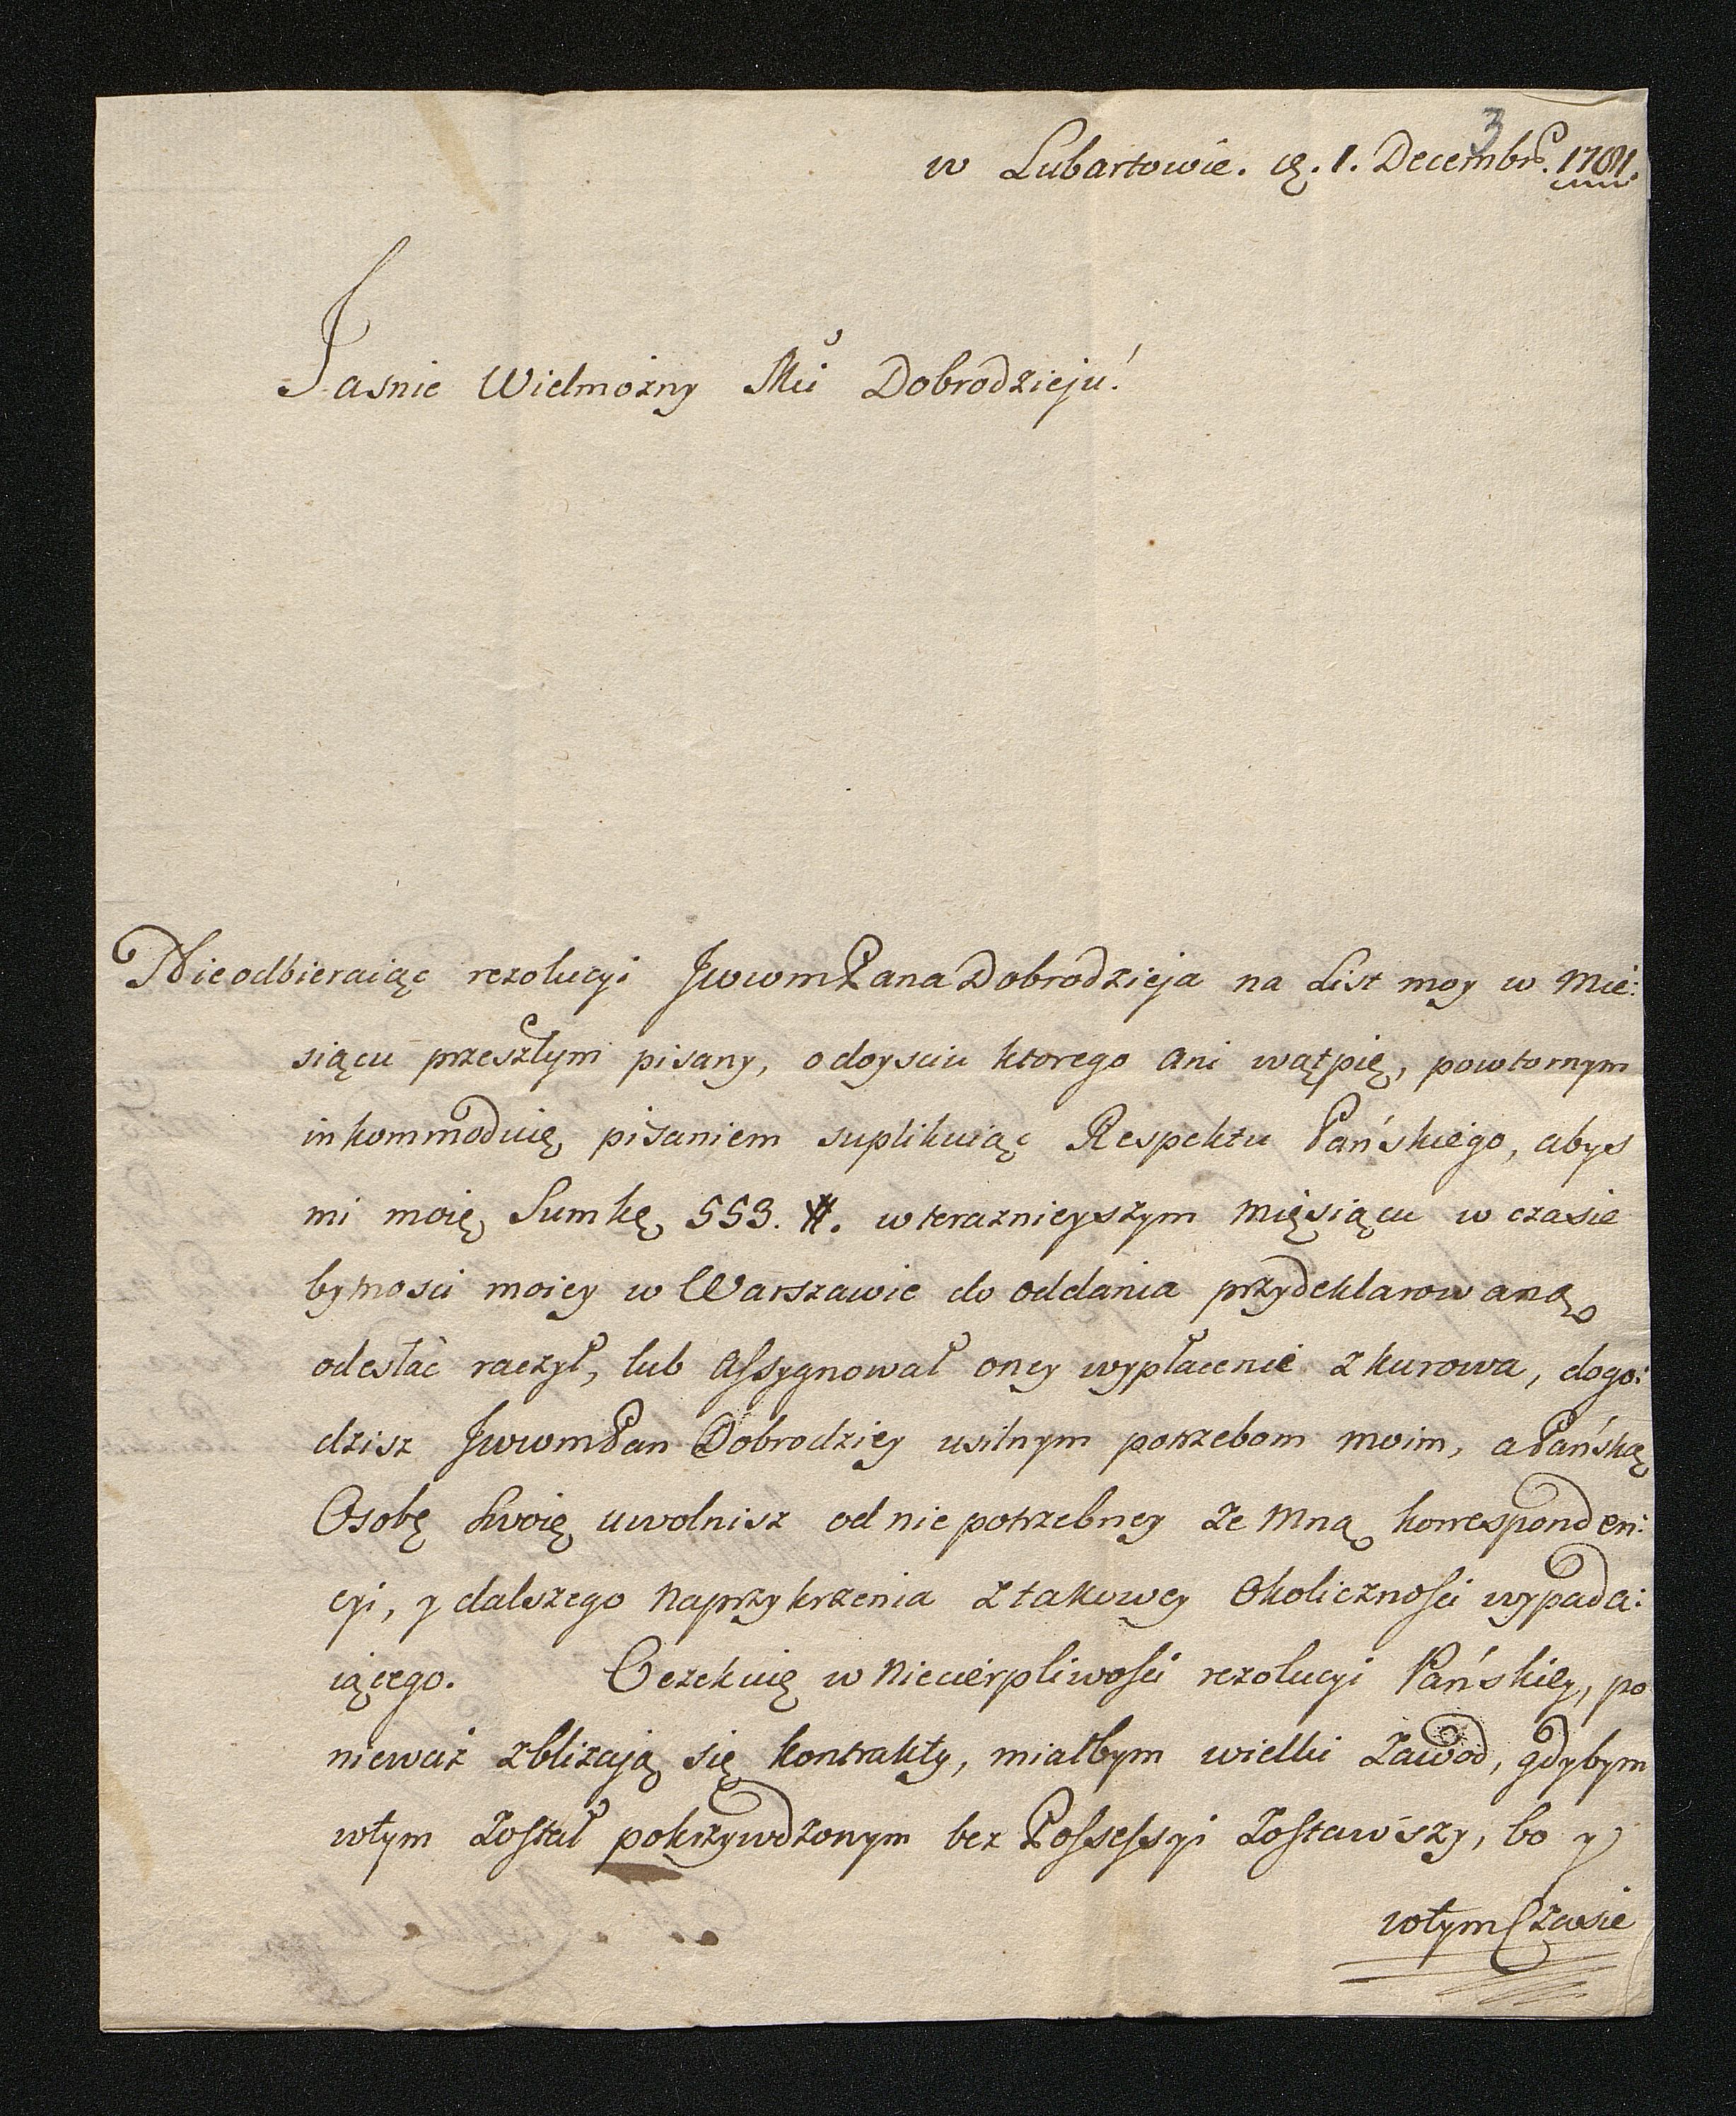 3
w Lubartowie. d. 1. Decembrs. 1781.
Jasnie Wielmożny Mci Dobrodzieju!
Nieodbieraiąc rezolucyi JwwmPana Dobrodzieja na List moy w Mie:
siącu przeszłym pisany, o doysciu ktorego ani wątpię, powtornym
inkommoduię pisaniem suplikuiąc Respektu Pańskiego, abys
mi moię Sumkę 553. #. w teraznieyszym Mięsiącu w czasie
bytnosci moiey w Warszawie do oddania przydeklarowaną
odesłać raczył, lub Assygnował oney wypłacenie z kurowa, dogo:
dzisz JwwmPan Dobrodziey usilnym potrzebom moim, a Pańską
Osobę Swoię uwolnisz od nie potrzebney ze Mną korresponden:
cyi, y dalszego Naprzykrzenia z takowey Okolicznosci wypada:
iącego. Oczekuię w Niecierpliwosci rezolucyi Pańskiey, po
nieważ zbliżają się kontrakty, miałbym wielki Zawod, gdybym
w tym Został pokrzywdzonym bez Possessyi Zostawszy, bo y
w tym Czasie